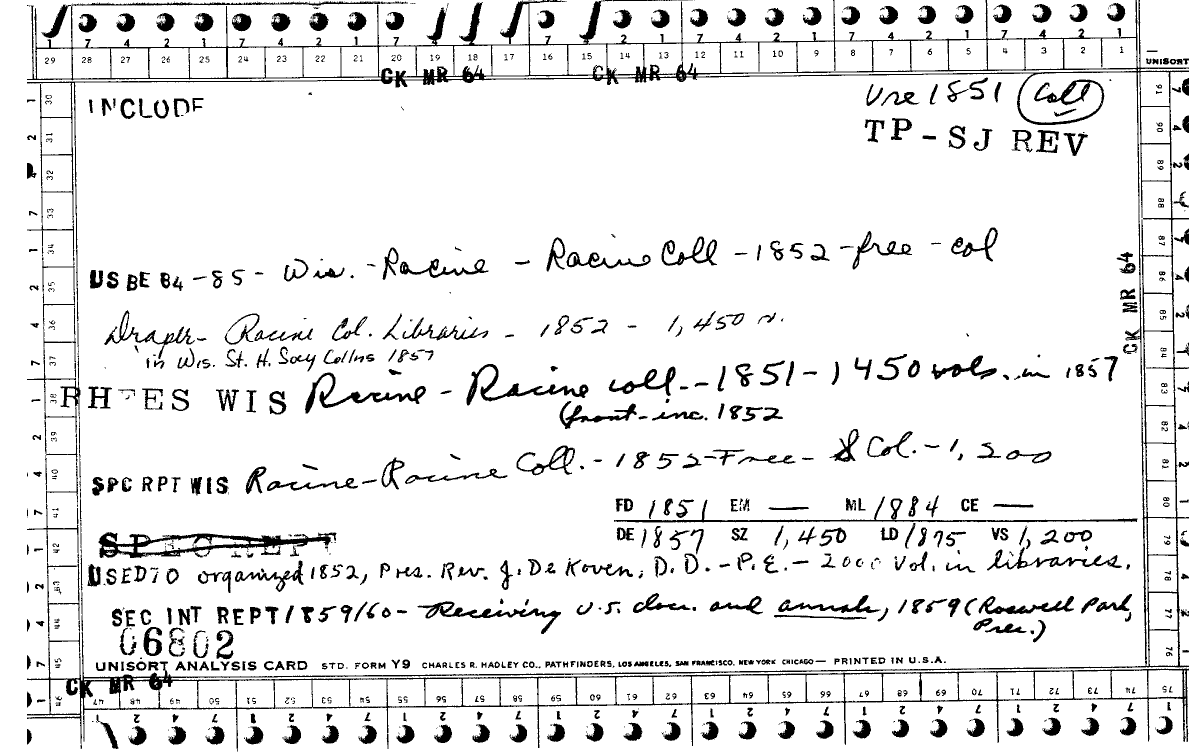 1 7 4 2 1 7 4 2 1 7 4 2 1 7 4 2 1 7 4 2 1 7 4 2 1 7 4 2 1
29 28 27 26 25 24 23 22 21 20 19 18 17 16 15 14 13 12 11 10 9 8 7 6 5 4 3 2 1
UNISORT
CK MR 64 CK MR 64
INCLUDE
Use 1851 Coll
TP-SJ REV
US BE 84-85- Wis. - Racine - Racine Coll - 1852 - free - col
Draper - Racine Col. Libraries - 1852 - 1,450 v.
in Wis. St. H. Socy Collns 1857
RHEES WIS Racine - Racine coll. - 1851 - 1450 vols. in 1857
(front - inc. 1852
SPC RPT WIS Racine - Racine Coll. - 1852 - Free - & Col. - 1,200
FD 1851 EM — ML 1884 CE —
SPEC REPT
DE 1857 SZ 1,450 LD 1875 VS 1,200
USED70 organized 1852, Pres. Rev. J. De Koven, D.D. - P.E. - 2000 Vol. in libraries.
SEC INT REPT/1859/60 - Receiving U.S. docs. and annals, 1859 (Roswell Park,
Pres.)
06802
UNISORT ANALYSIS CARD STD. FORM Y9 CHARLES R. HADLEY CO., PATHFINDERS, LOS ANGELES, SAN FRANCISCO, NEW YORK CHICAGO — PRINTED IN U.S.A.
CK MR 64
CK MR 64
30 31 32 33 34 35 36 37 38 39 40 41 42 43 44 45 46
47 48 49 50 51 52 53 54 55 56 57 58 59 60 61 62 63 64 65 66 67 68 69 70 71 72 73 74 75
91 90 89 88 87 86 85 84 83 82 81 80 79 78 77 76